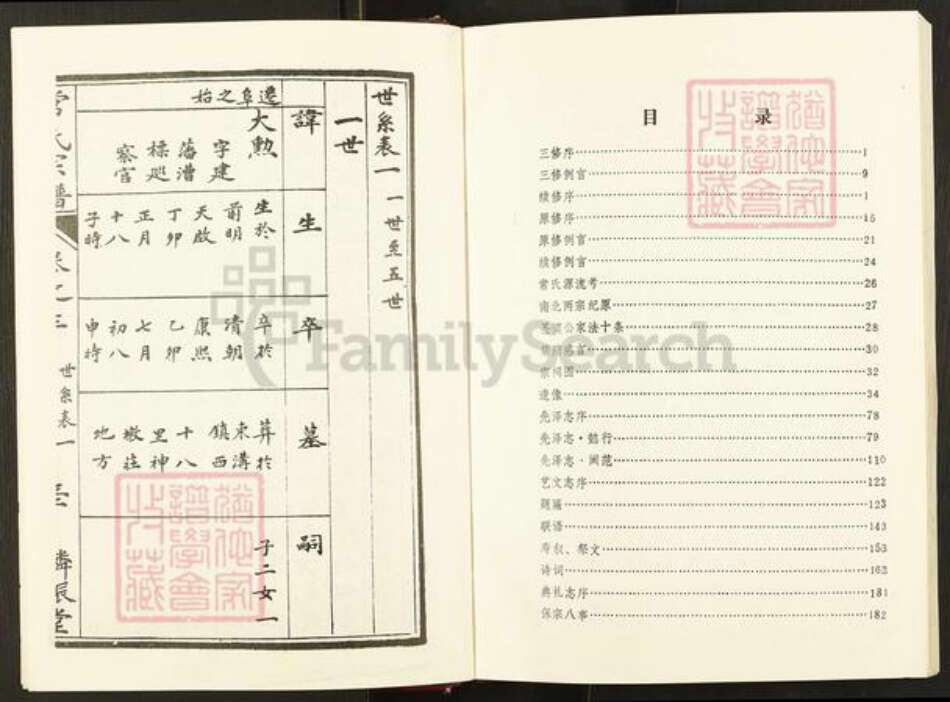 世系表一 一世至五世
一世
諱
生
卒
墓
嗣
遷阜之始
大勲
字建
藩漕
標巡
察官
生於
前明
天啟
丁卯
正月
十八
子時
卒於
清朝
康熙
乙卯
七月
初八
申時
葬於
東溝
鎮西
十八
里神
墩莊
地方
子二女一
氏宗譜
世系表一
目录
三修序 1
三修例言 9
续修序 1
原修序 15
原修例言 21
续修例言 24
常氏源流考 26
南北两宗纪原 27
公家法十条 28
30
宗祠图 32
遗像 34
先泽志序 78
先泽志·懿行 79
先泽志·阃范 110
艺文志序 122
题匾 123
联语 143
寿叙、祭文 153
诗词 163
典礼志序 181
保宗八事 182
猶他家
譜學會
收藏
猶他家
譜學會
收藏
FamilySearch